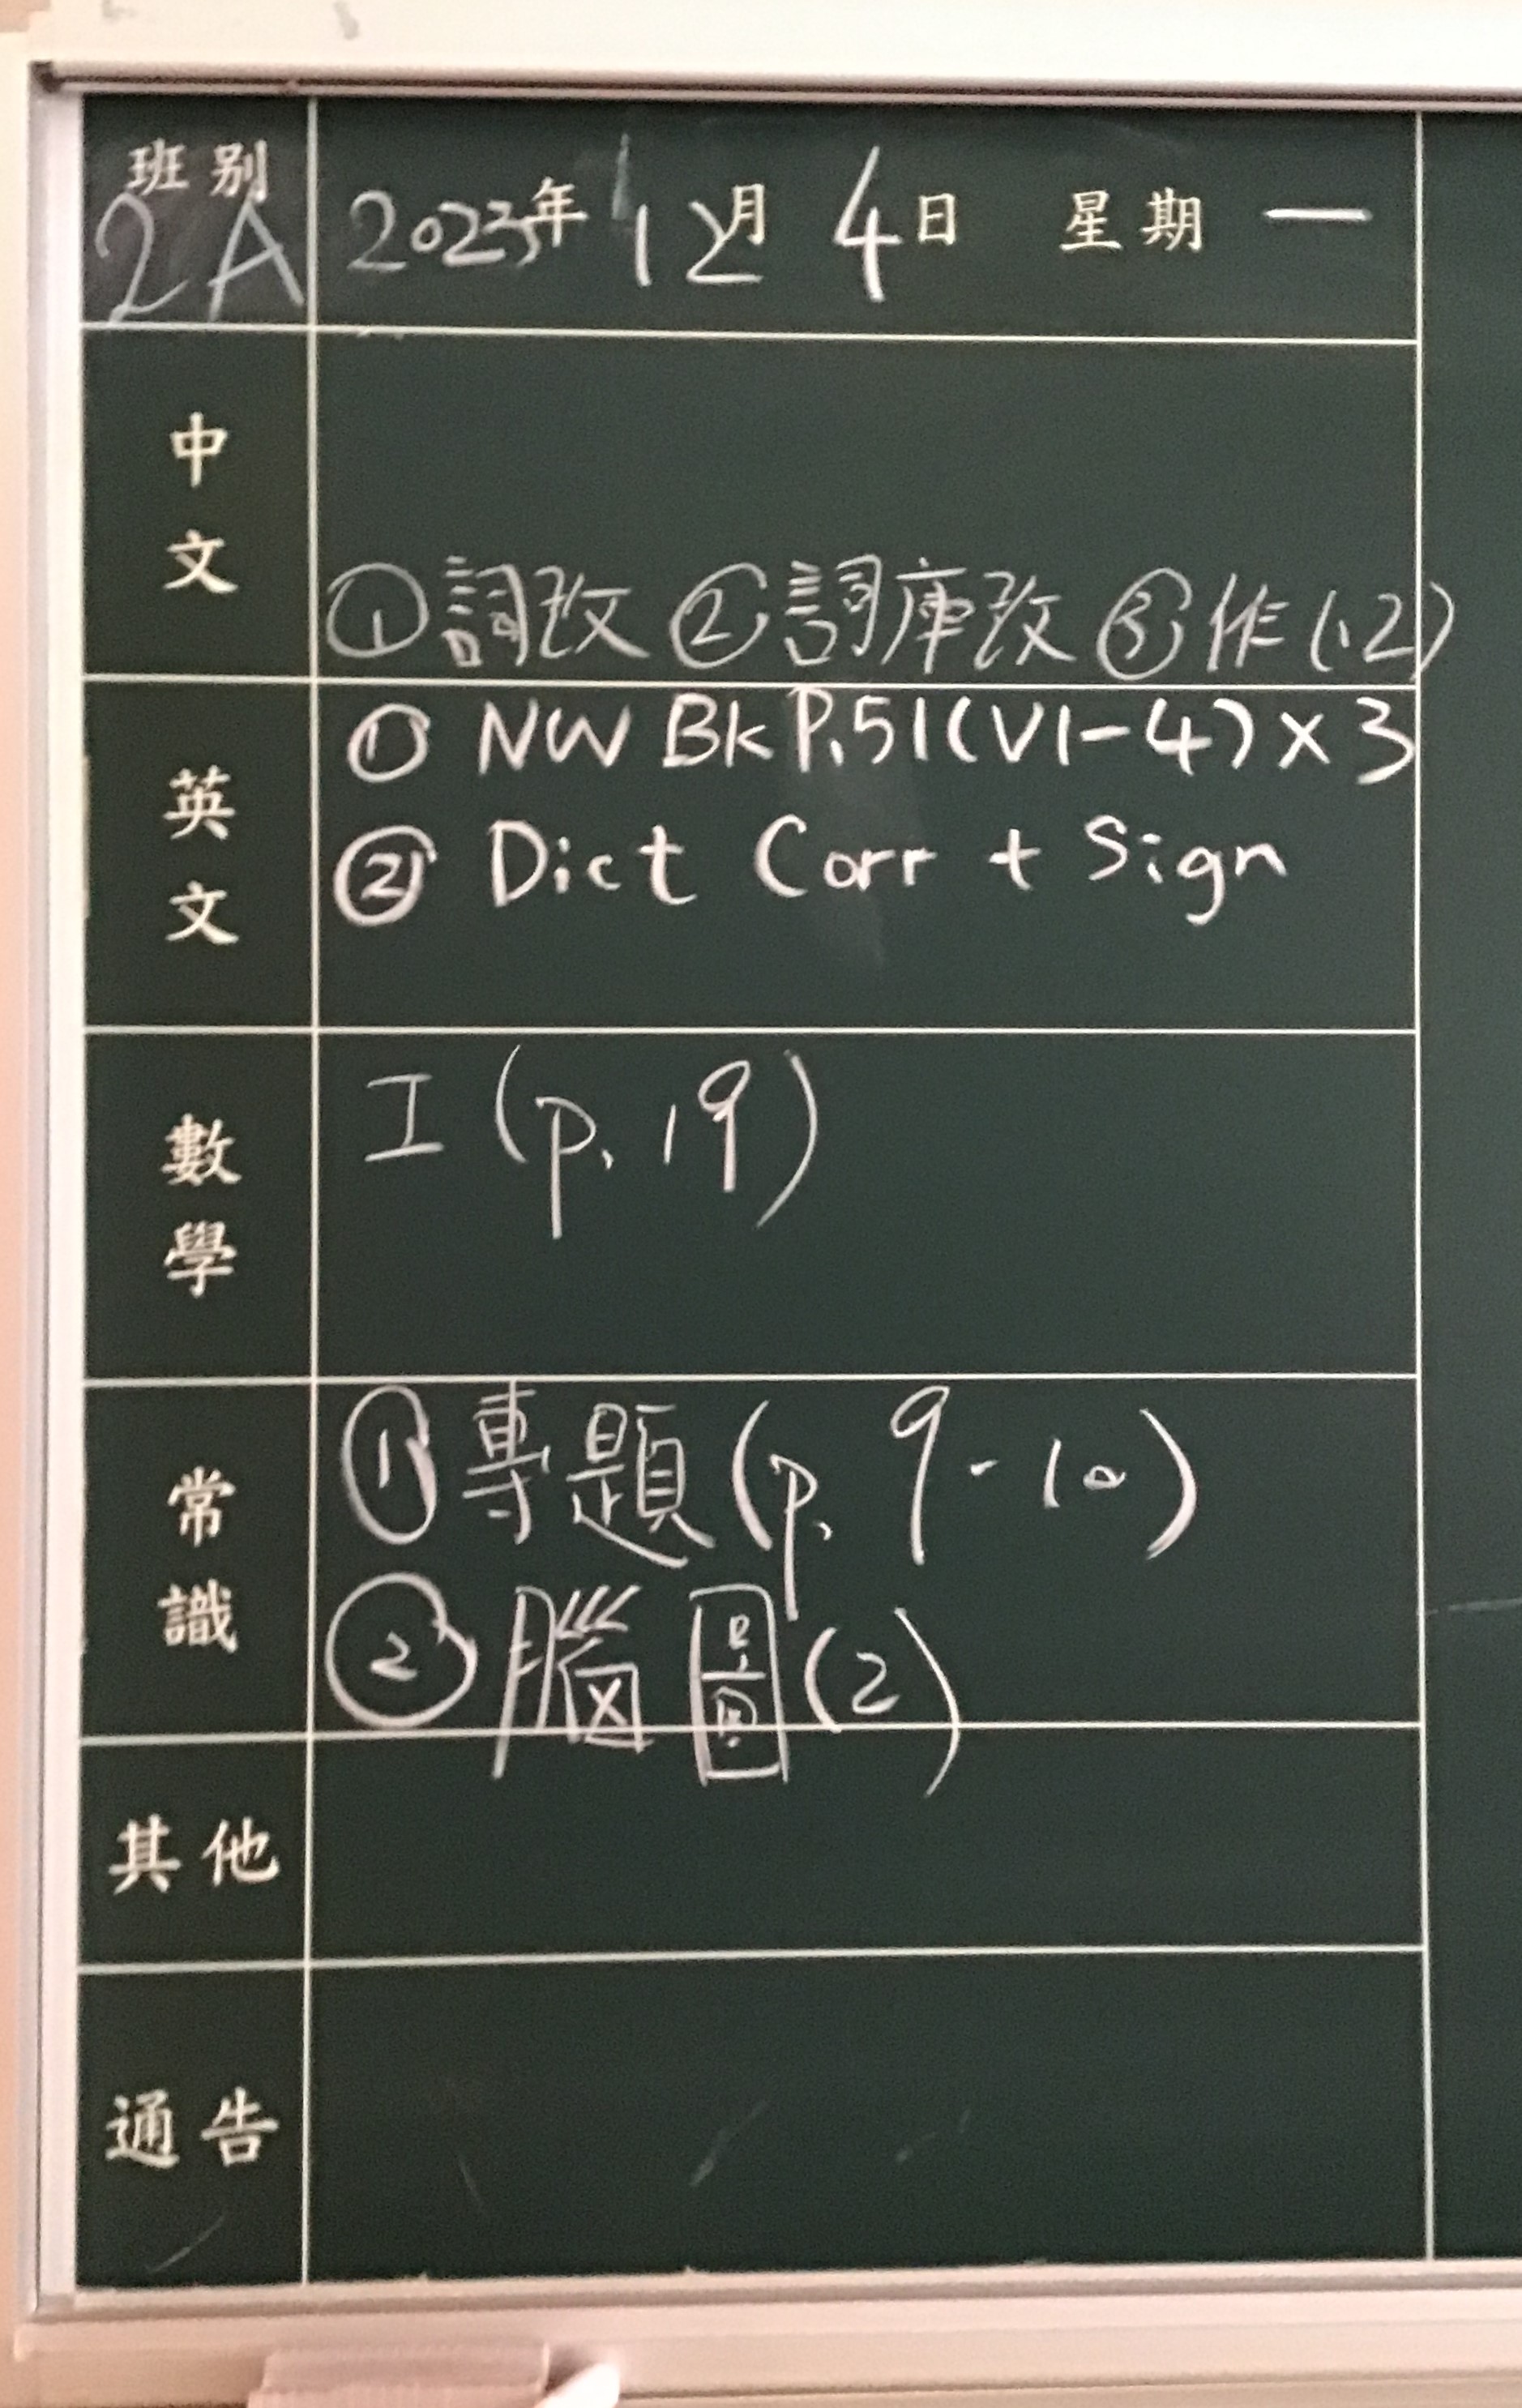 班別
2A
2023年 12月 4日 星期一
中文
①詞改 ②詞庫改 ③作(12)
英文
① NW Bk P.51(V1-4)×3
② Dict Corr + Sign
數學
工(p.19)
常識
①專題(p.9-10)
②腦圖(2)
其他
通告